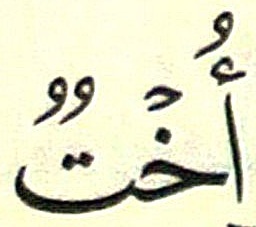 أُخْتٌ